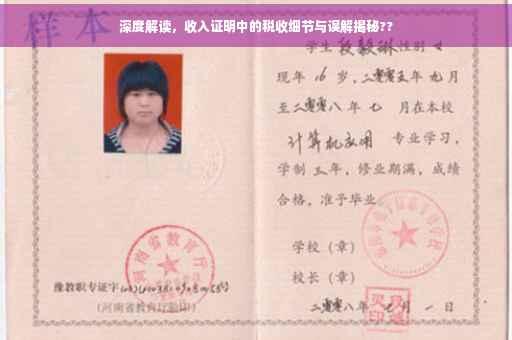 深度解读，收入证明中的税收细节与误解揭秘??
样本
学生 段毅琳 性别 女
现年 16 岁，二零零五年 九月
至二零零八年 七 月在本校
计算机应用 专业学习，
学制 三年，修业期满，成绩
合格，准予毕业
学校（章）
校长（章）
二零零八年 月 一 日
河南省教育厅
豫教职专证字
（河南省教育厅验印）